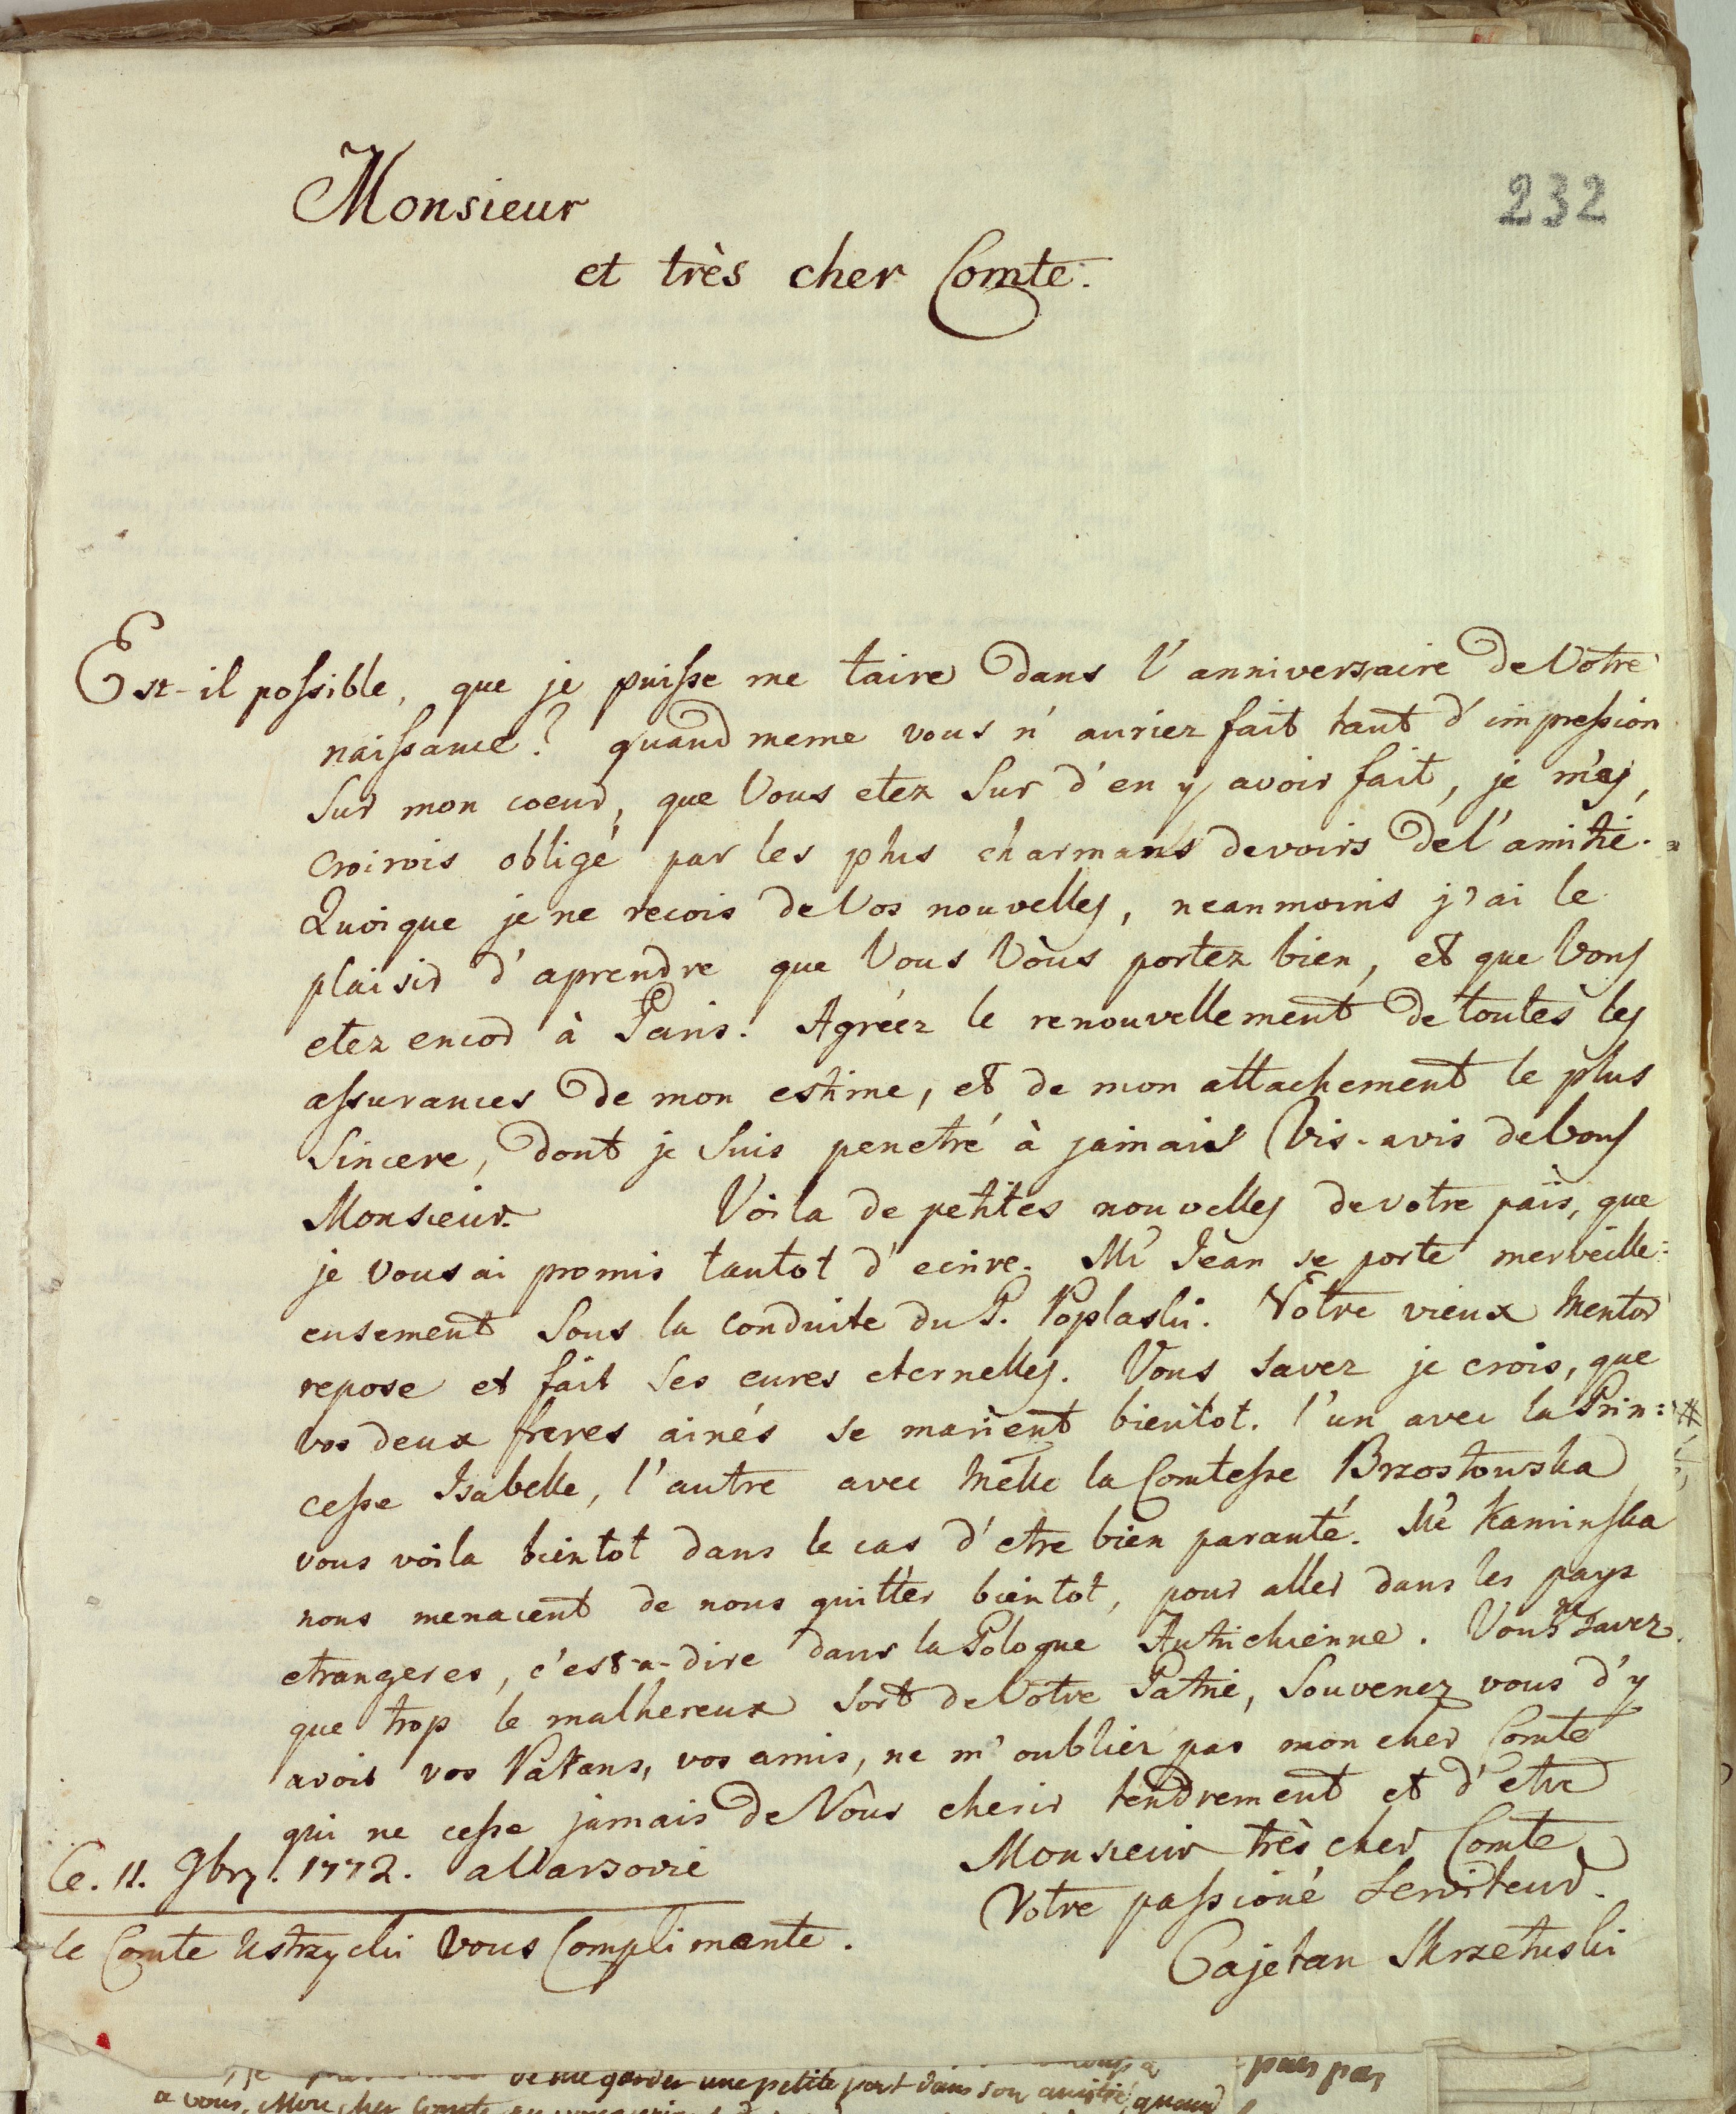 232
Monsieur
et très cher Comte.
Est-il possible, que je puisse me taire dans l'anniversaire de Votre
naissance? quand meme vous n'auriez fait tant d'impression
sur mon coeur, que Vous etez sur d'en y avoir fait, je m'ej,
croirois obligé par les plus charmans devoirs de l'amitié.
Quoique je ne recois de Vos nouvelles, neanmoins j'ai le
plaisir d'aprendre que Vous Vous portez bien, et que Vous
etez encor à Paris. Agréez le renouvellement de toutes les
assurances de mon estime, et de mon attachement le plus
sincere, dont je suis penetré à jamais Vis-avis de Vous
Monsieur. Voila de petites nouvelles de votre païs, que
je vous ai promis tantot d'ecrire. Mr Jean se porte merveille=
eusement sous la conduite du P. Poplaski. Votre vieux Mentor
repose et fait ses cures eternelles. Vous savez je crois, que
vos deux freres ainés se marient bientot. l'un avec la Prin=
cesse Isabelle, l'autre avec Melle la Comtesse Brzostowska
vous voila bientot dans le cas d'etre bien paranté. Me Kaminska
nous menacent de nous quitter bientot, pour aller dans les pays
etrangeres, c'est-a-dire dans la Pologne Autrichienne. Vous ne savez
que trop le malhereux sort de Votre Patrie, Souvenez vous d'y
avoir vos Parans, vos amis, ne m'oubliez pas mon cher Comte
qui ne cesse jamais de Vous cherir tendrement et d'etre
Monsieur très cher Comte
Ce. 11. 9br. 1772. a Varsovie
Votre passioné Serviteur.
le Comte Ustrzycki vous Complimente.
Cajetan Skrzetuski
de me garder une petite part dans son amitié, quand
pas par
a vous, Mon cher Comte